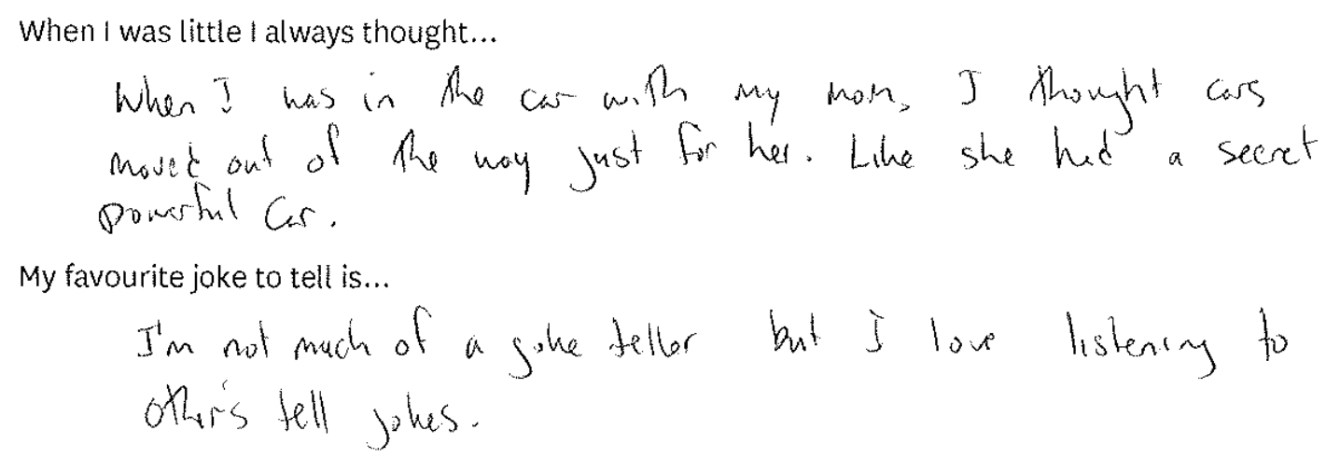 When I was little I always thought...
When I was in the car with my mom, I thought cars
moved out of the way just for her. Like she had a secret
powerful car.
My favourite joke to tell is...
I'm not much of a joke teller but I love listening to
other's tell jokes.